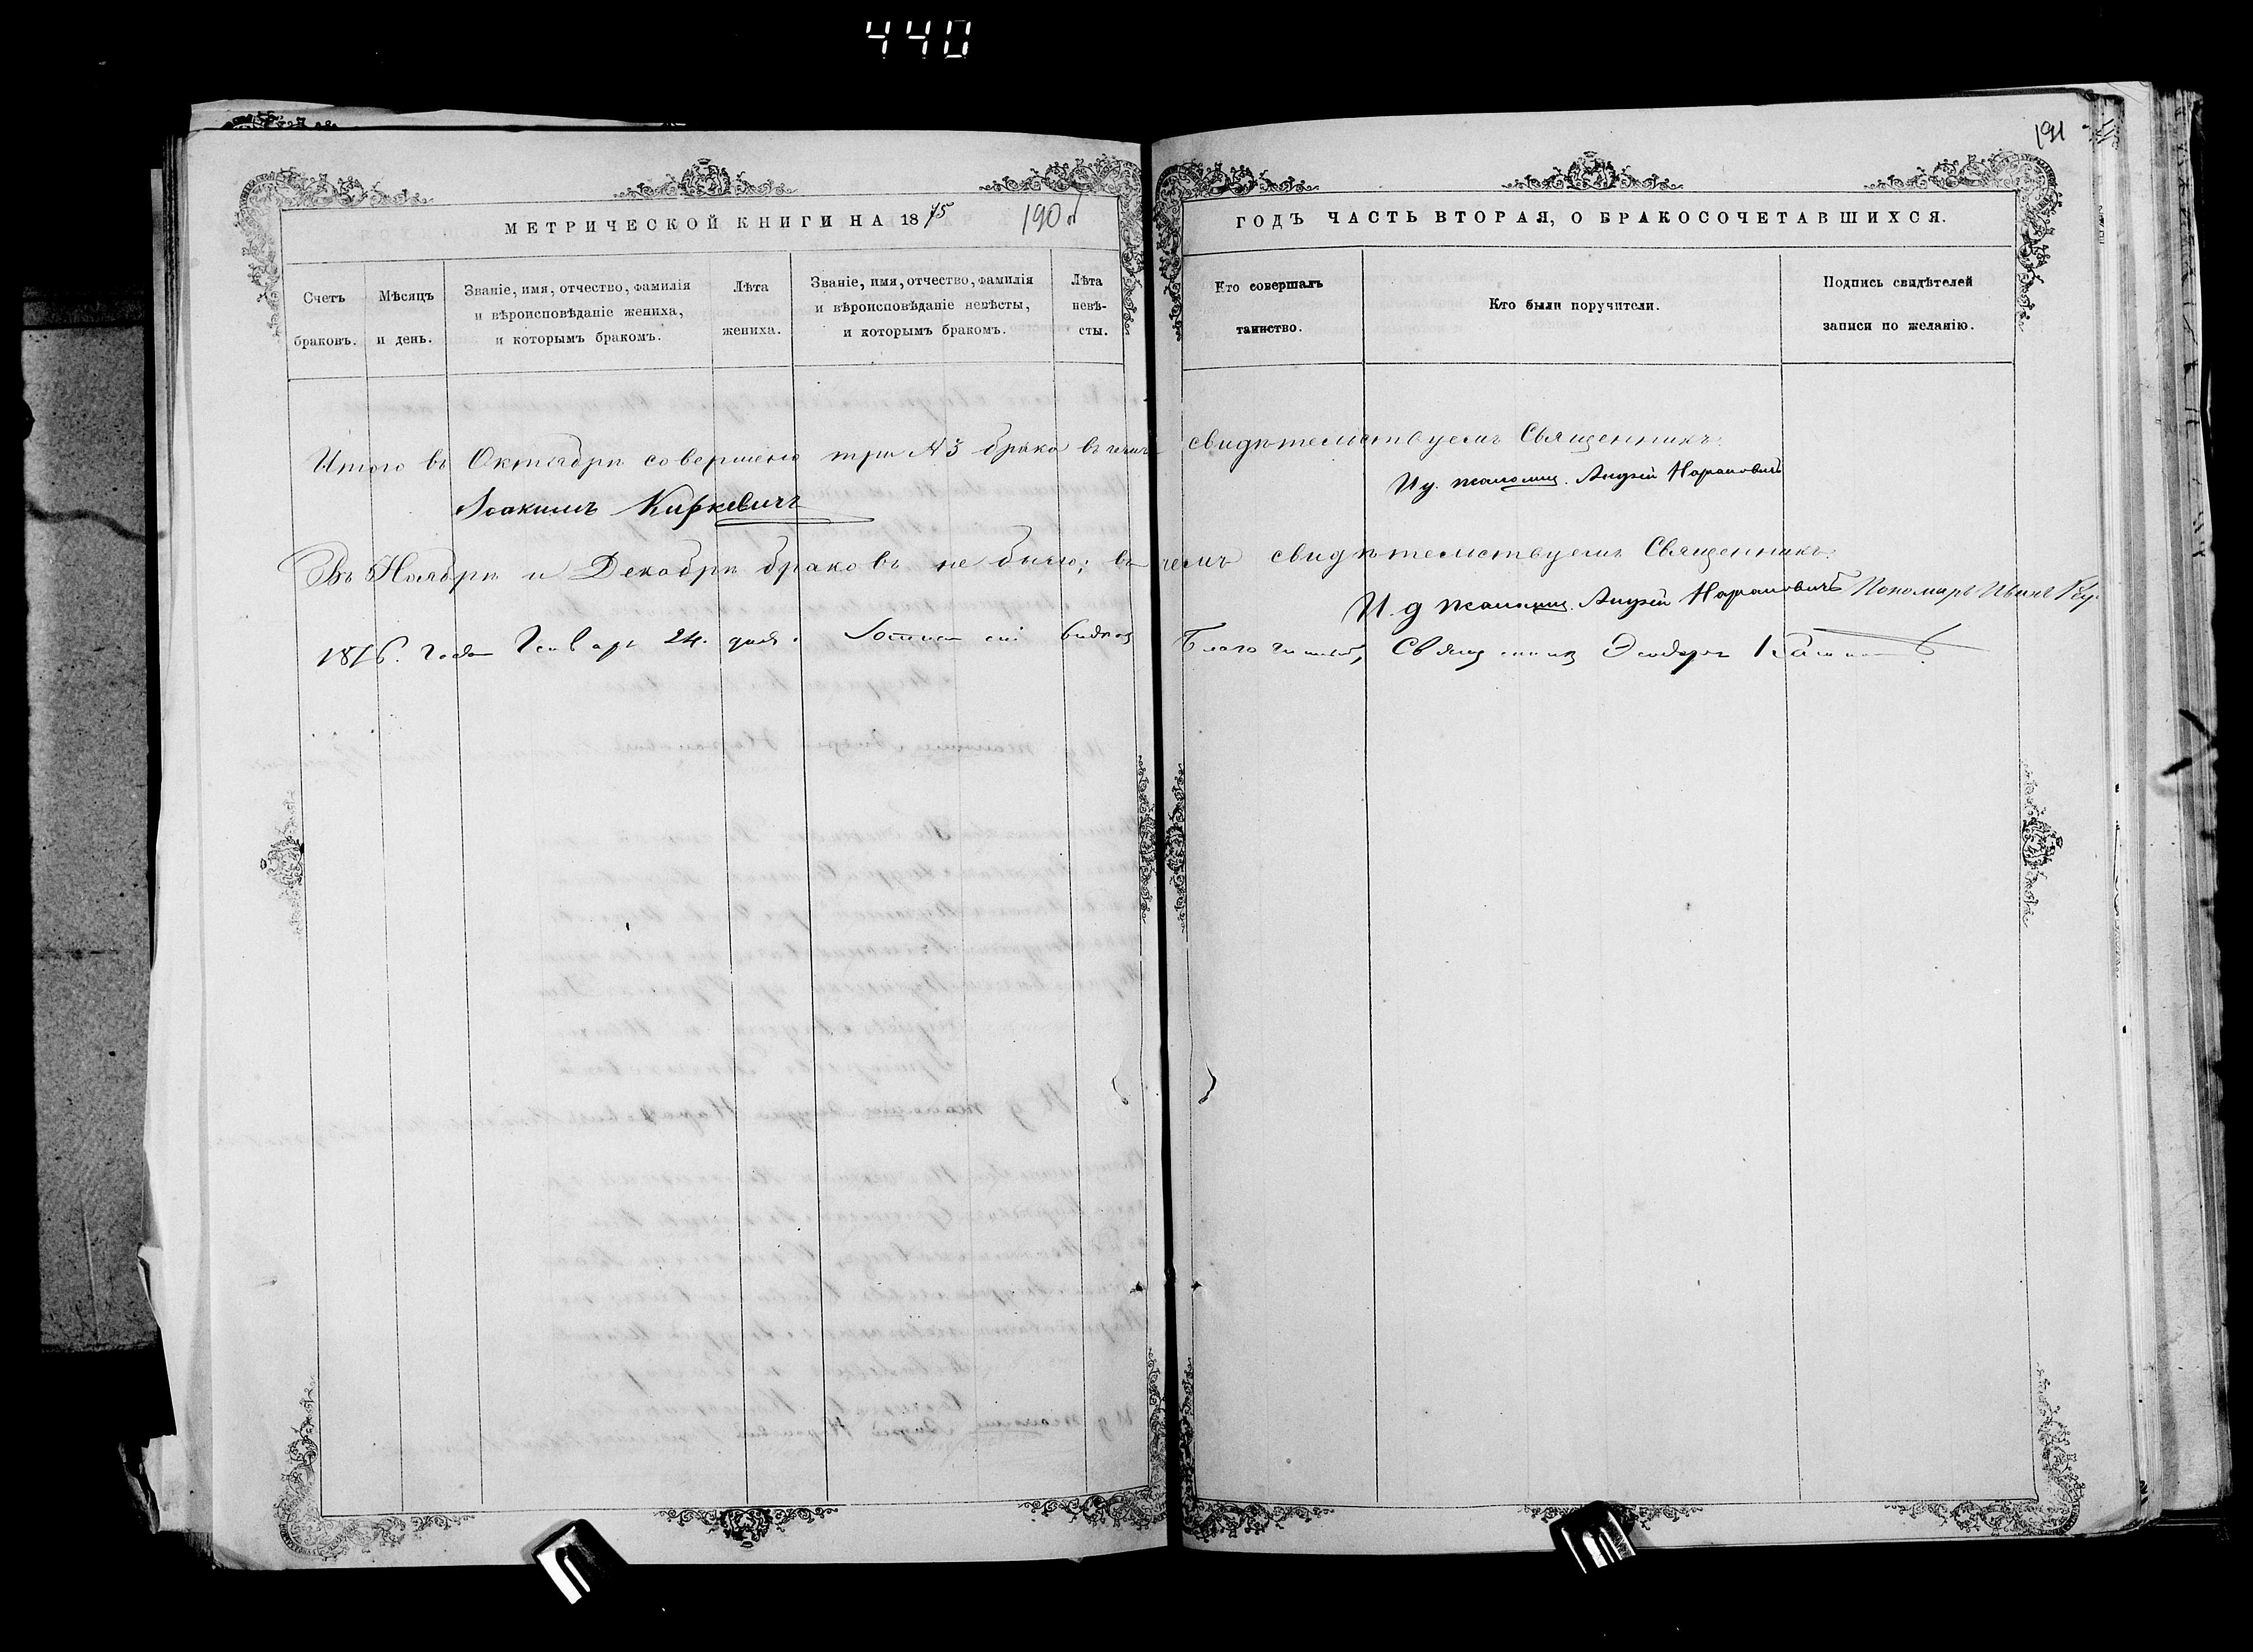 440
191
МЕТРИЧЕСКОЙ КНИГИ НА 1875
190 об
ГОДЪ ЧАСТЬ ВТОРАЯ, О БРАКОСОЧЕТАВШИХСЯ.
Счетъ браковъ.
Мѣсяцъ и день.
Званіе, имя, отчество, фамилія
и вѣроисповѣданіе жениха,
и которымъ бракомъ.
Лѣта жениха.
Званіе, имя, отчество, фамилія
и вѣроисповѣданіе невѣсты,
и которымъ бракомъ.
Лѣта
невѣ-
сты.
Кто совершалъ
таинство.
Кто были поручители.
Подпись свидѣтелей
записи по желанію.
Итого въ Октябрѣ совершено три №3 брака въ чемъ свидѣтельствуемъ Священникъ
Іоакимъ Киркевичъ
И д псаломщ. Андрей Нарановичъ
Въ Ноябрѣ и Декабрѣ браковъ не было; въ чемъ свидѣтельствуемъ Священникъ
И д псаломщ. Андрей Нарановичъ Пономарь Иванъ
1876. года Генваря 24. дня. видѣлъ Благочинный, Священникъ Ѳеодоръ